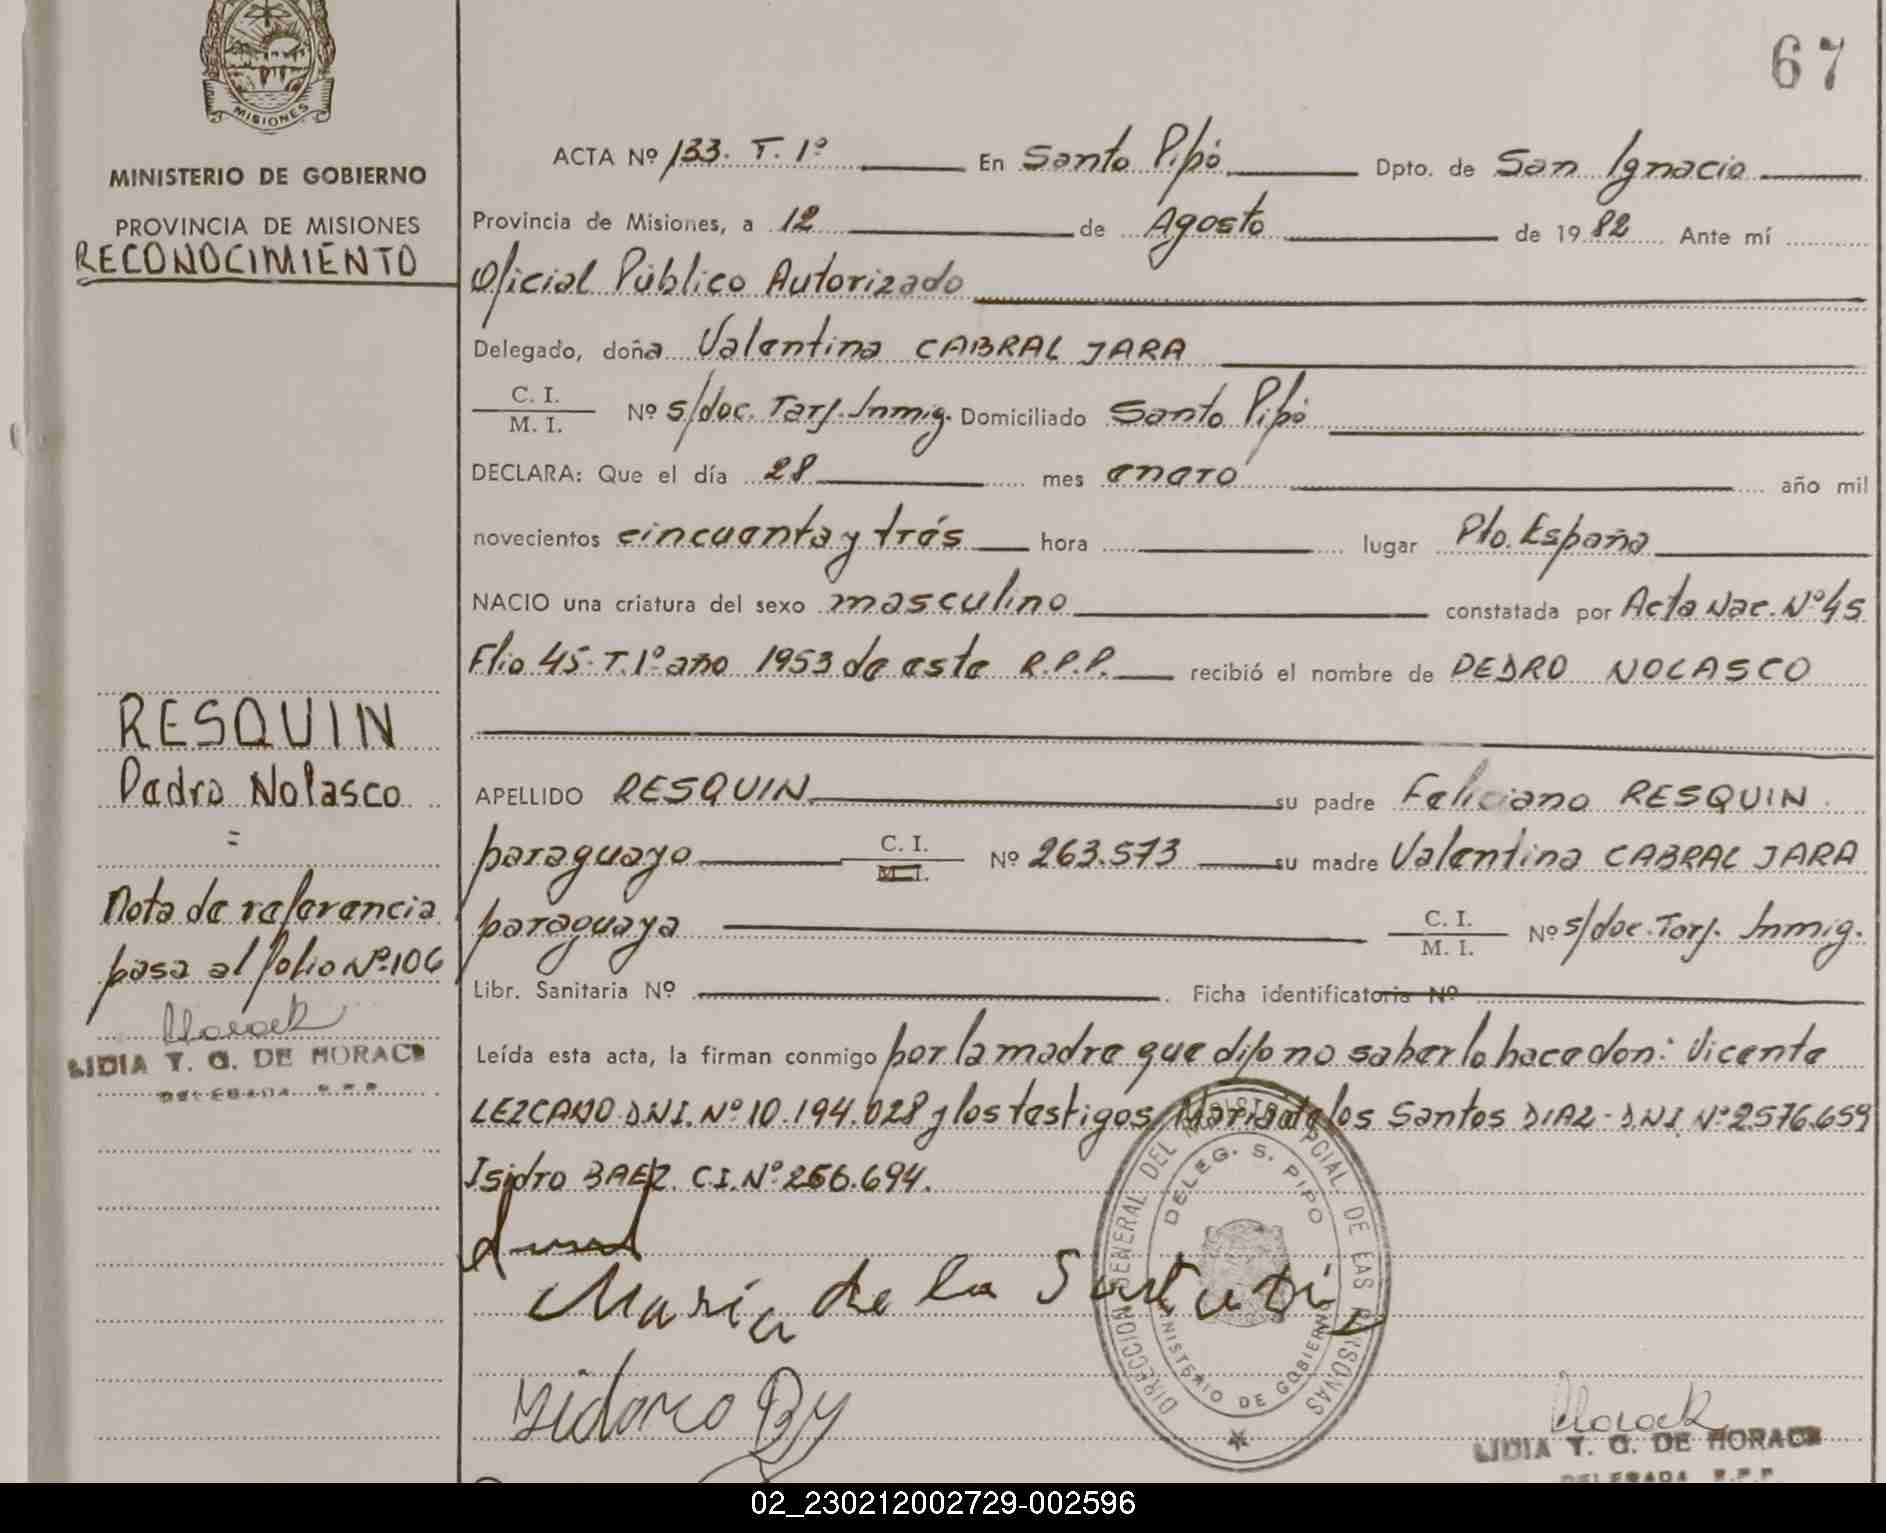 67
MISIONES
MINISTERIO DE GOBIERNO
PROVINCIA DE MISIONES
RECONOCIMIENTO
RESQUIN
Pedro Nolasco
=
Nota de referencia
pasa al folio Nº 106
LIDIA T. G. DE HORACK
DELEGADA R.P.P.
ACTA Nº 133. T. 1º En Santo Pipó Dpto. de San Ignacio
Provincia de Misiones, a 12 de Agosto de 1982 Ante mí
Oficial Público Autorizado
Delegado, doña Valentina CABRAL JARA
C. I.
M. I. Nº s/doc. Tarj. Inmig. Domiciliado Santo Pipó
DECLARA: Que el día 28 mes enero año mil
novecientos cincuenta y trés hora lugar Pto. España
NACIO una criatura del sexo masculino constatada por Acta Nac. Nº 45
Flio 45- T. 1º año 1953 de este R.P.P. recibió el nombre de PEDRO NOLASCO
APELLIDO RESQUIN su padre Feliciano RESQUIN
paraguayo C. I. M. I. Nº 263.573 su madre Valentina CABRAL JARA
paraguaya C. I. M. I. Nº s/doc. Tarj. Inmig.
Libr. Sanitaria Nº Ficha identificatoria Nº
Leída esta acta, la firman conmigo por la madre que dijo no saber lo hace don: Vicente
LEZCANO D.N.I. Nº 10.194.028 y los testigos, Maria de los Santos DIAZ - D.N.I. Nº 2576.659
Isidro BAEZ C.I. Nº 266.694.
María de la
DIRECCION GENERAL DEL REGISTRO PCIAL. DE LAS PERSONAS
DELEG. S. PIPO
MINISTERIO DE GOBIERNO
LIDIA T. G. DE HORACK
DELEGADA R.P.P.
02_230212002729-002596